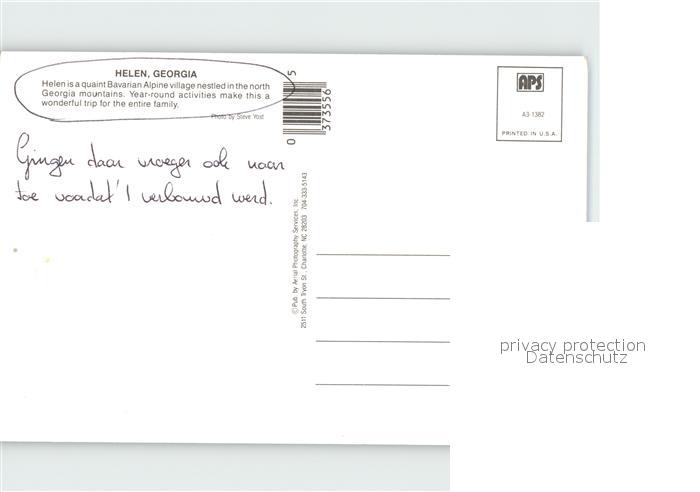 HELEN, GEORGIA
Helen is a quaint Bavarian Alpine village nestled in the north
Georgia mountains. Year-round activities make this a
wonderful trip for the entire family.
Photo by Steve Yost
5
0
373556
APS
A3-1382
PRINTED IN U.S.A.
Gingen daar vroeger ook naar
toe voordat 't verbouwd werd.
©Pub. by Aerial Photography Services, Inc.
2511 South Tryon St., Charlotte, NC 28203 704-333-5143
privacy protection
Datenschutz